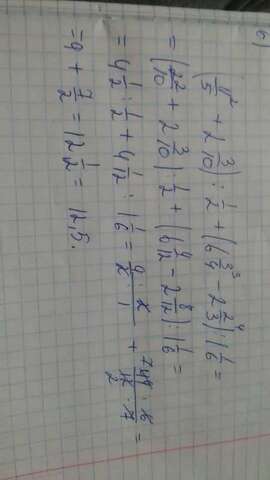 б)
(4/5² + 2 3/10) : 1/2 + (6 3/4³ - 2 2/3⁴) : 1 1/6 =
= (2 2/10 + 2 3/10) : 1/2 + (6 9/12 - 2 8/12) : 1 1/6 =
= 4 1/2 : 1/2 + 4 1/12 : 1 1/6 = 9 · 2/2 · 1 + 7 49 · 6/12 · 7 2 =
= 9 + 7/2 = 12 1/2 = 12,5.